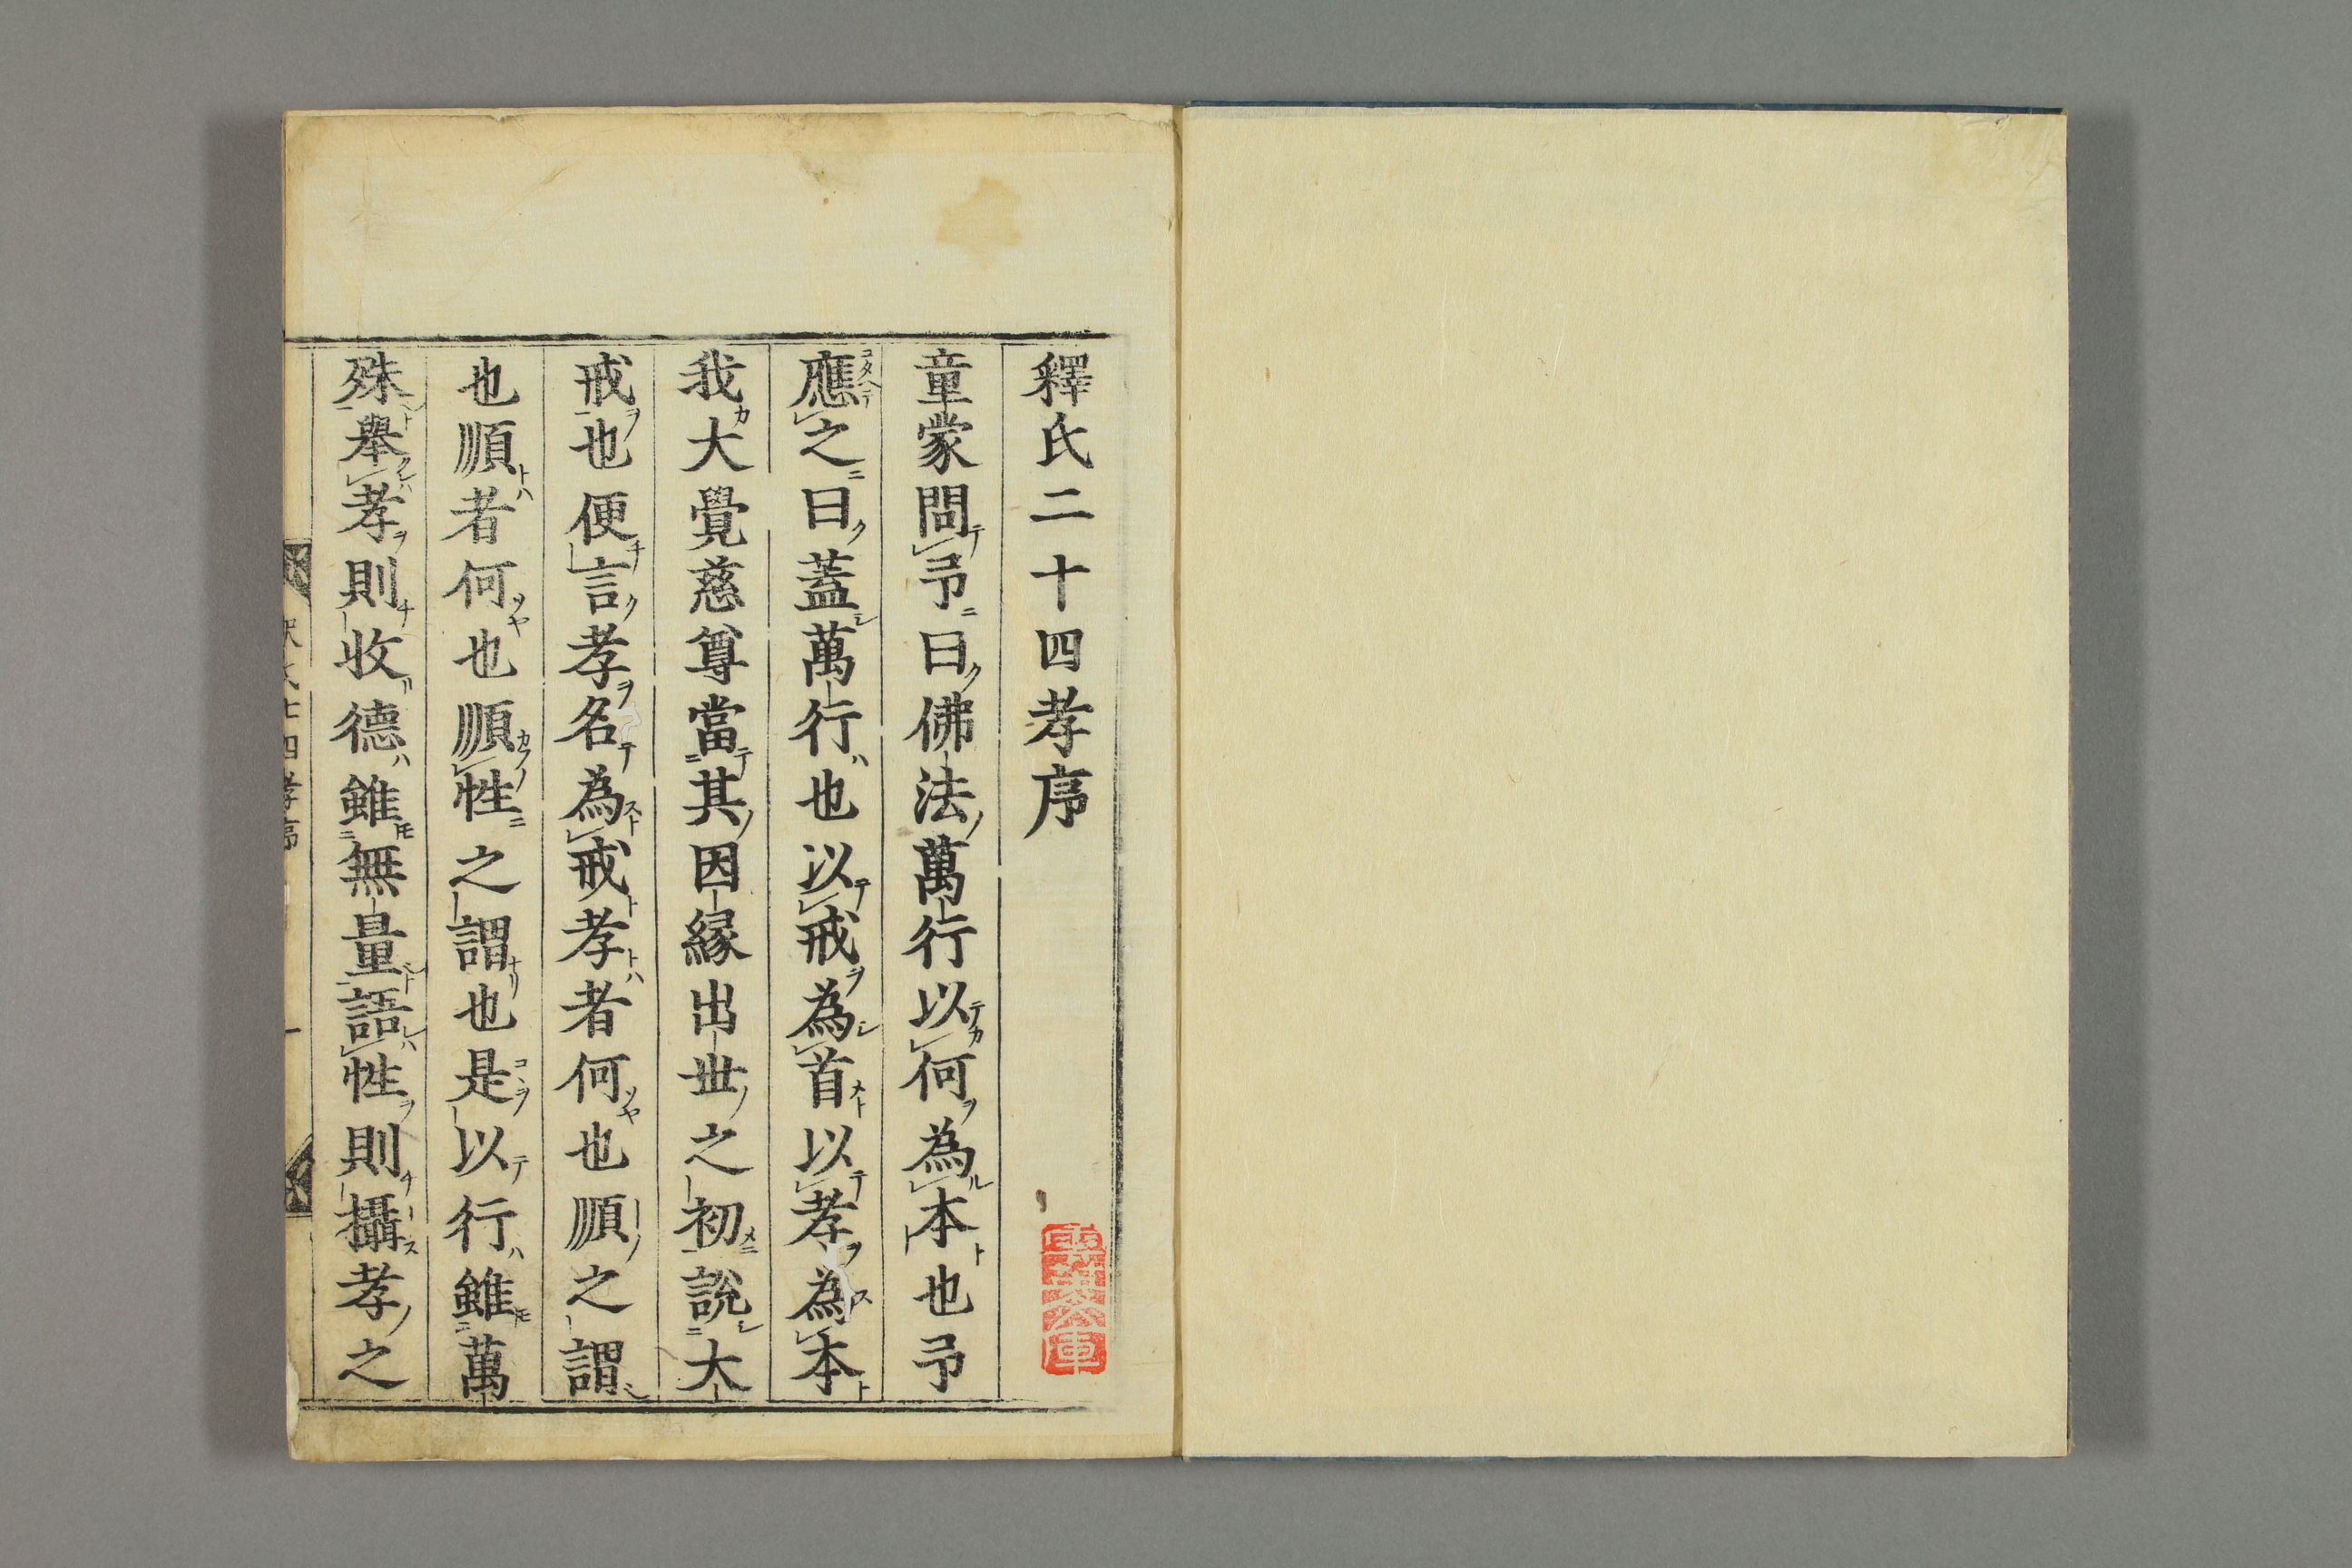 釋氏二十四孝序
童蒙問予曰佛法萬行以何為本也予
應之曰蓋萬行也以戒為首以孝為本
我大覺慈尊當其因縁出世之初說大
戒也便言孝名為戒孝者何也順之謂
也順者何也順性之謂也是以行雖萬
殊舉孝則收德雖無量語性則攝孝之